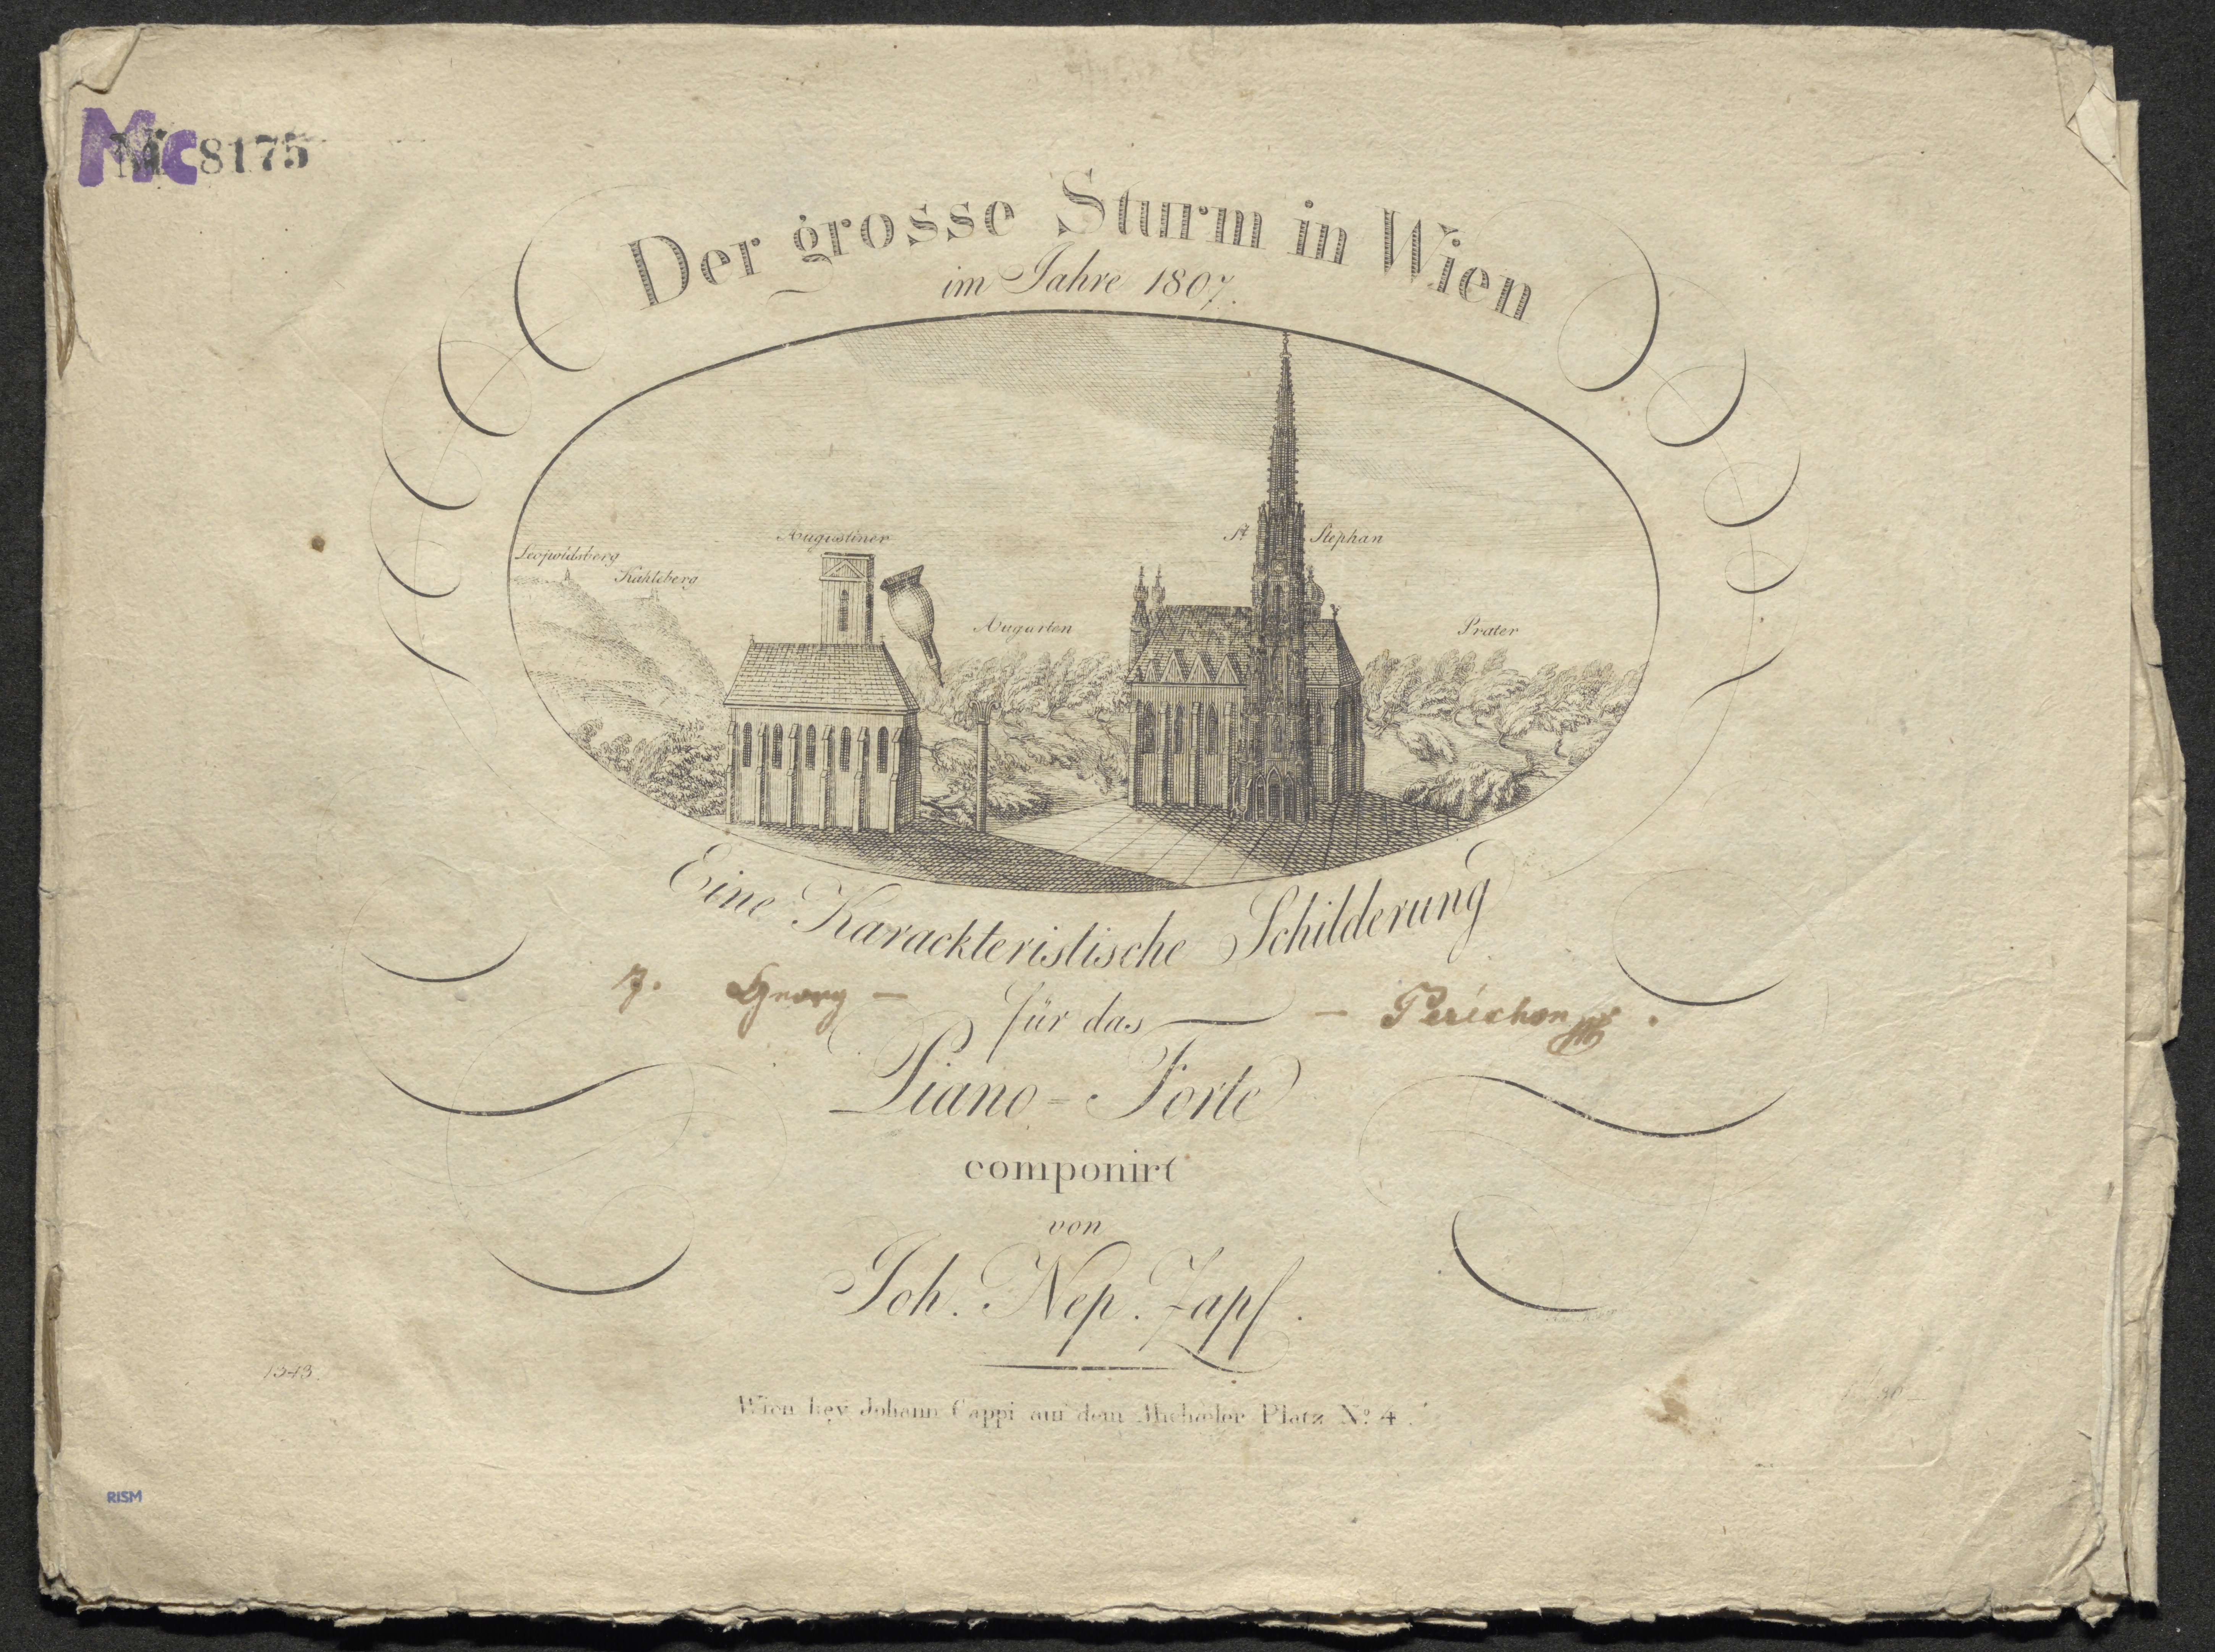 Mc 8175
Der grosse Sturm in Wien
im Jahre 1807.
Augustiner
St Stephan
Leopoldsberg
Kahleberg
Augarten
Prater
Eine Karackteristische Schilderung
J. Georg – – Perichon
für das
Piano-Forte
componirt
von
Joh. Nep. Zapf.
1343.
Wien bey Johann Cappi auf dem Michæler Platz No. 4.
RISM